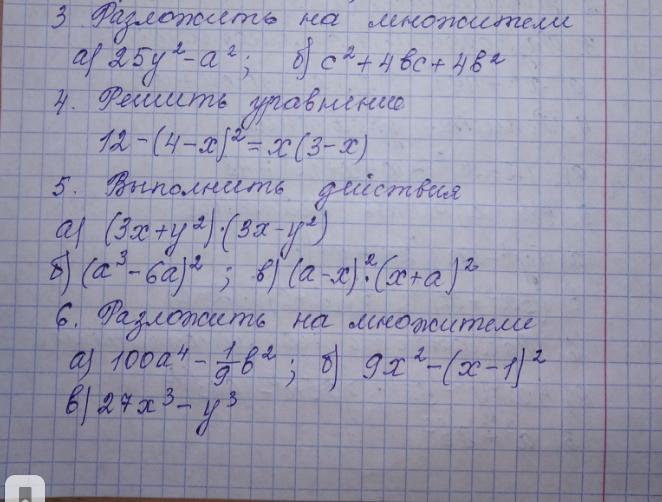 3 Разложить на множители
а) 25y² - a²; б) c² + 4bc + 4b²
4. Решить уравнение
12 - (4 - x)² = x(3 - x)
5. Выполнить действия
а) (3x + y²)·(3x - y²)
б) (a³ - 6a)²; в) (a - x)²·(x + a)²
6. Разложить на множители
а) 100a⁴ - 1/9 b²; б) 9x² - (x - 1)²
в) 27x³ - y³